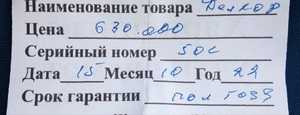 Наименование товара Делкор
Цена 630.000
Серийный номер 50с
Дата 15 Месяц 10 Год 22
Срок гарантии пол года